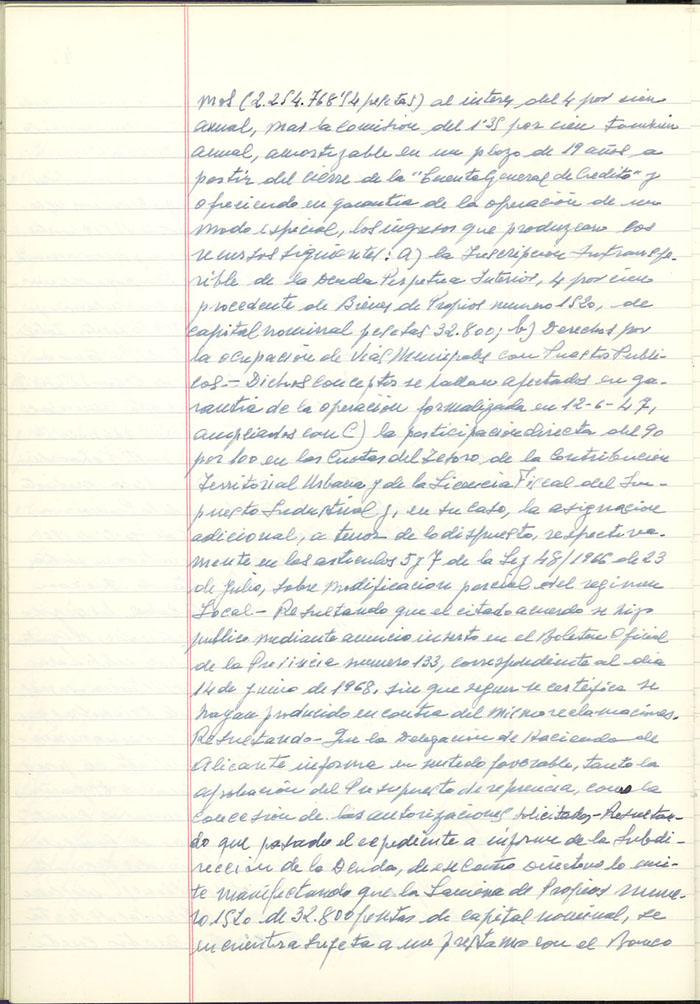 mos (2.254.768'54 pesetas) al interes del 4 por cien
anual, mas la Comision del 1'35 por cien tambien
anual, amortizable en un plazo de 19 años a
partir del cierre de la "Cuenta General de Credito" y
ofreciendo en garantia de la operación de un
modo especial, los ingresos que produzcan los
recursos siguientes: a) la Inscripcion Intransfe-
rible de la Deuda Perpetua Interior, 4 por cien
procedente de Bienes de Propios numero 1520, de
capital nominal pesetas 32.800; b) Derechos por
la ocupación de Vias Municipales con Puestos Publi-
cos.- Dichos conceptos se hallan afectados en ga-
rantia de la operación formalizada en 12-6-47,
ampliados con C) la participacion directa del 90
por 100 en las Cuotas del Tesoro de la Contribucion
Territorial Urbana y de la Licencia Fiscal del Im-
puesto Industrial y, en su caso, la asignacion
adicional, a tenor de lo dispuesto, respectiva-
mente en los articulos 5 y 7 de la Ley 48/1966 de 23
de Julio, sobre modificacion parcial del regimen
Local- Resultando que el citado acuerdo se hizo
publico mediante anuncio inserto en el Boletin Oficial
de la Provincia numero 133, correspondiente al dia
14 de junio de 1968, sin que segun se certifica se
hayan producido en contra del mismo reclamaciones.
Resultando- Que la Delegacion de Hacienda de
Alicante informa en sentido favorable, tanto la
aprobación del Presupuesto de referencia, como la
concesión de las autorizaciones solicitadas- Resultan-
do que pasado el expediente a informe de la Subdi-
rección de la Deuda, dicho Centro Directivo lo emi-
te manifestando que la Lamina de Propios nume-
ro 1520 de 32.800 pesetas de capital nominal, se
encuentra sujeta a un prestamo con el Banco